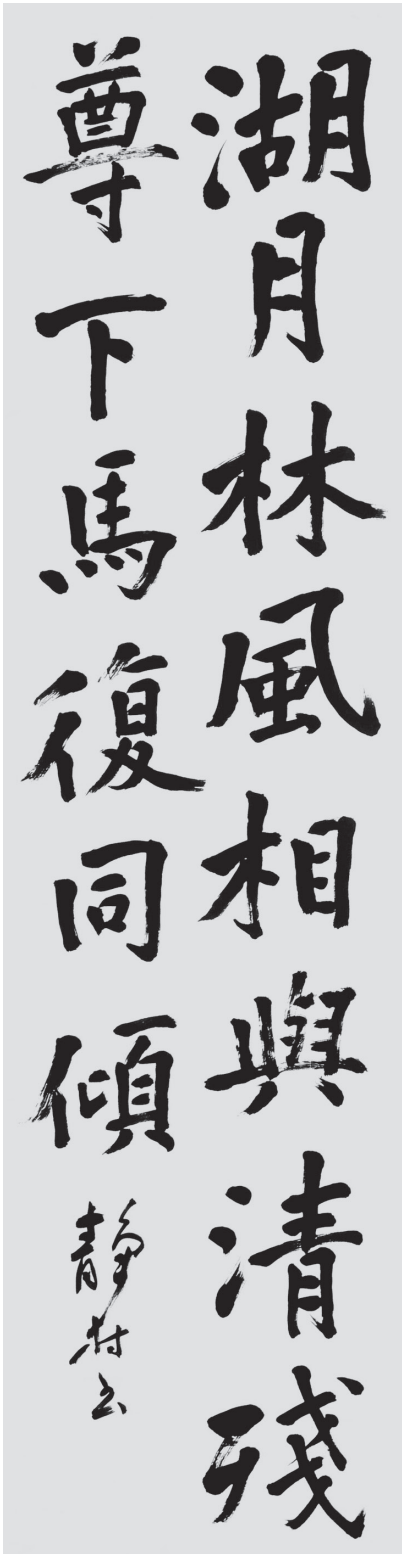 湖月林風相與清殘
尊下馬復同傾
静村书